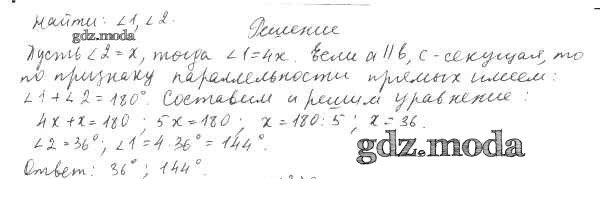 Найти: ∠1, ∠2.
gdz.moda
Решение
Пусть ∠2=x, тогда ∠1=4x. Если a∥b, c-секущая, то
по признаку параллельности прямых имеем:
∠1+∠2=180°. Составим и решим уравнение:
4x+x=180; 5x=180; x=180:5; x=36.
∠2=36°; ∠1=4·36°=144°.
gdz.moda
Ответ: 36°; 144°.